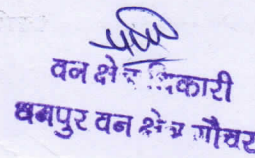 वन क्षेत्राधिकारी
धनपुर वन क्षेत्र गौचर